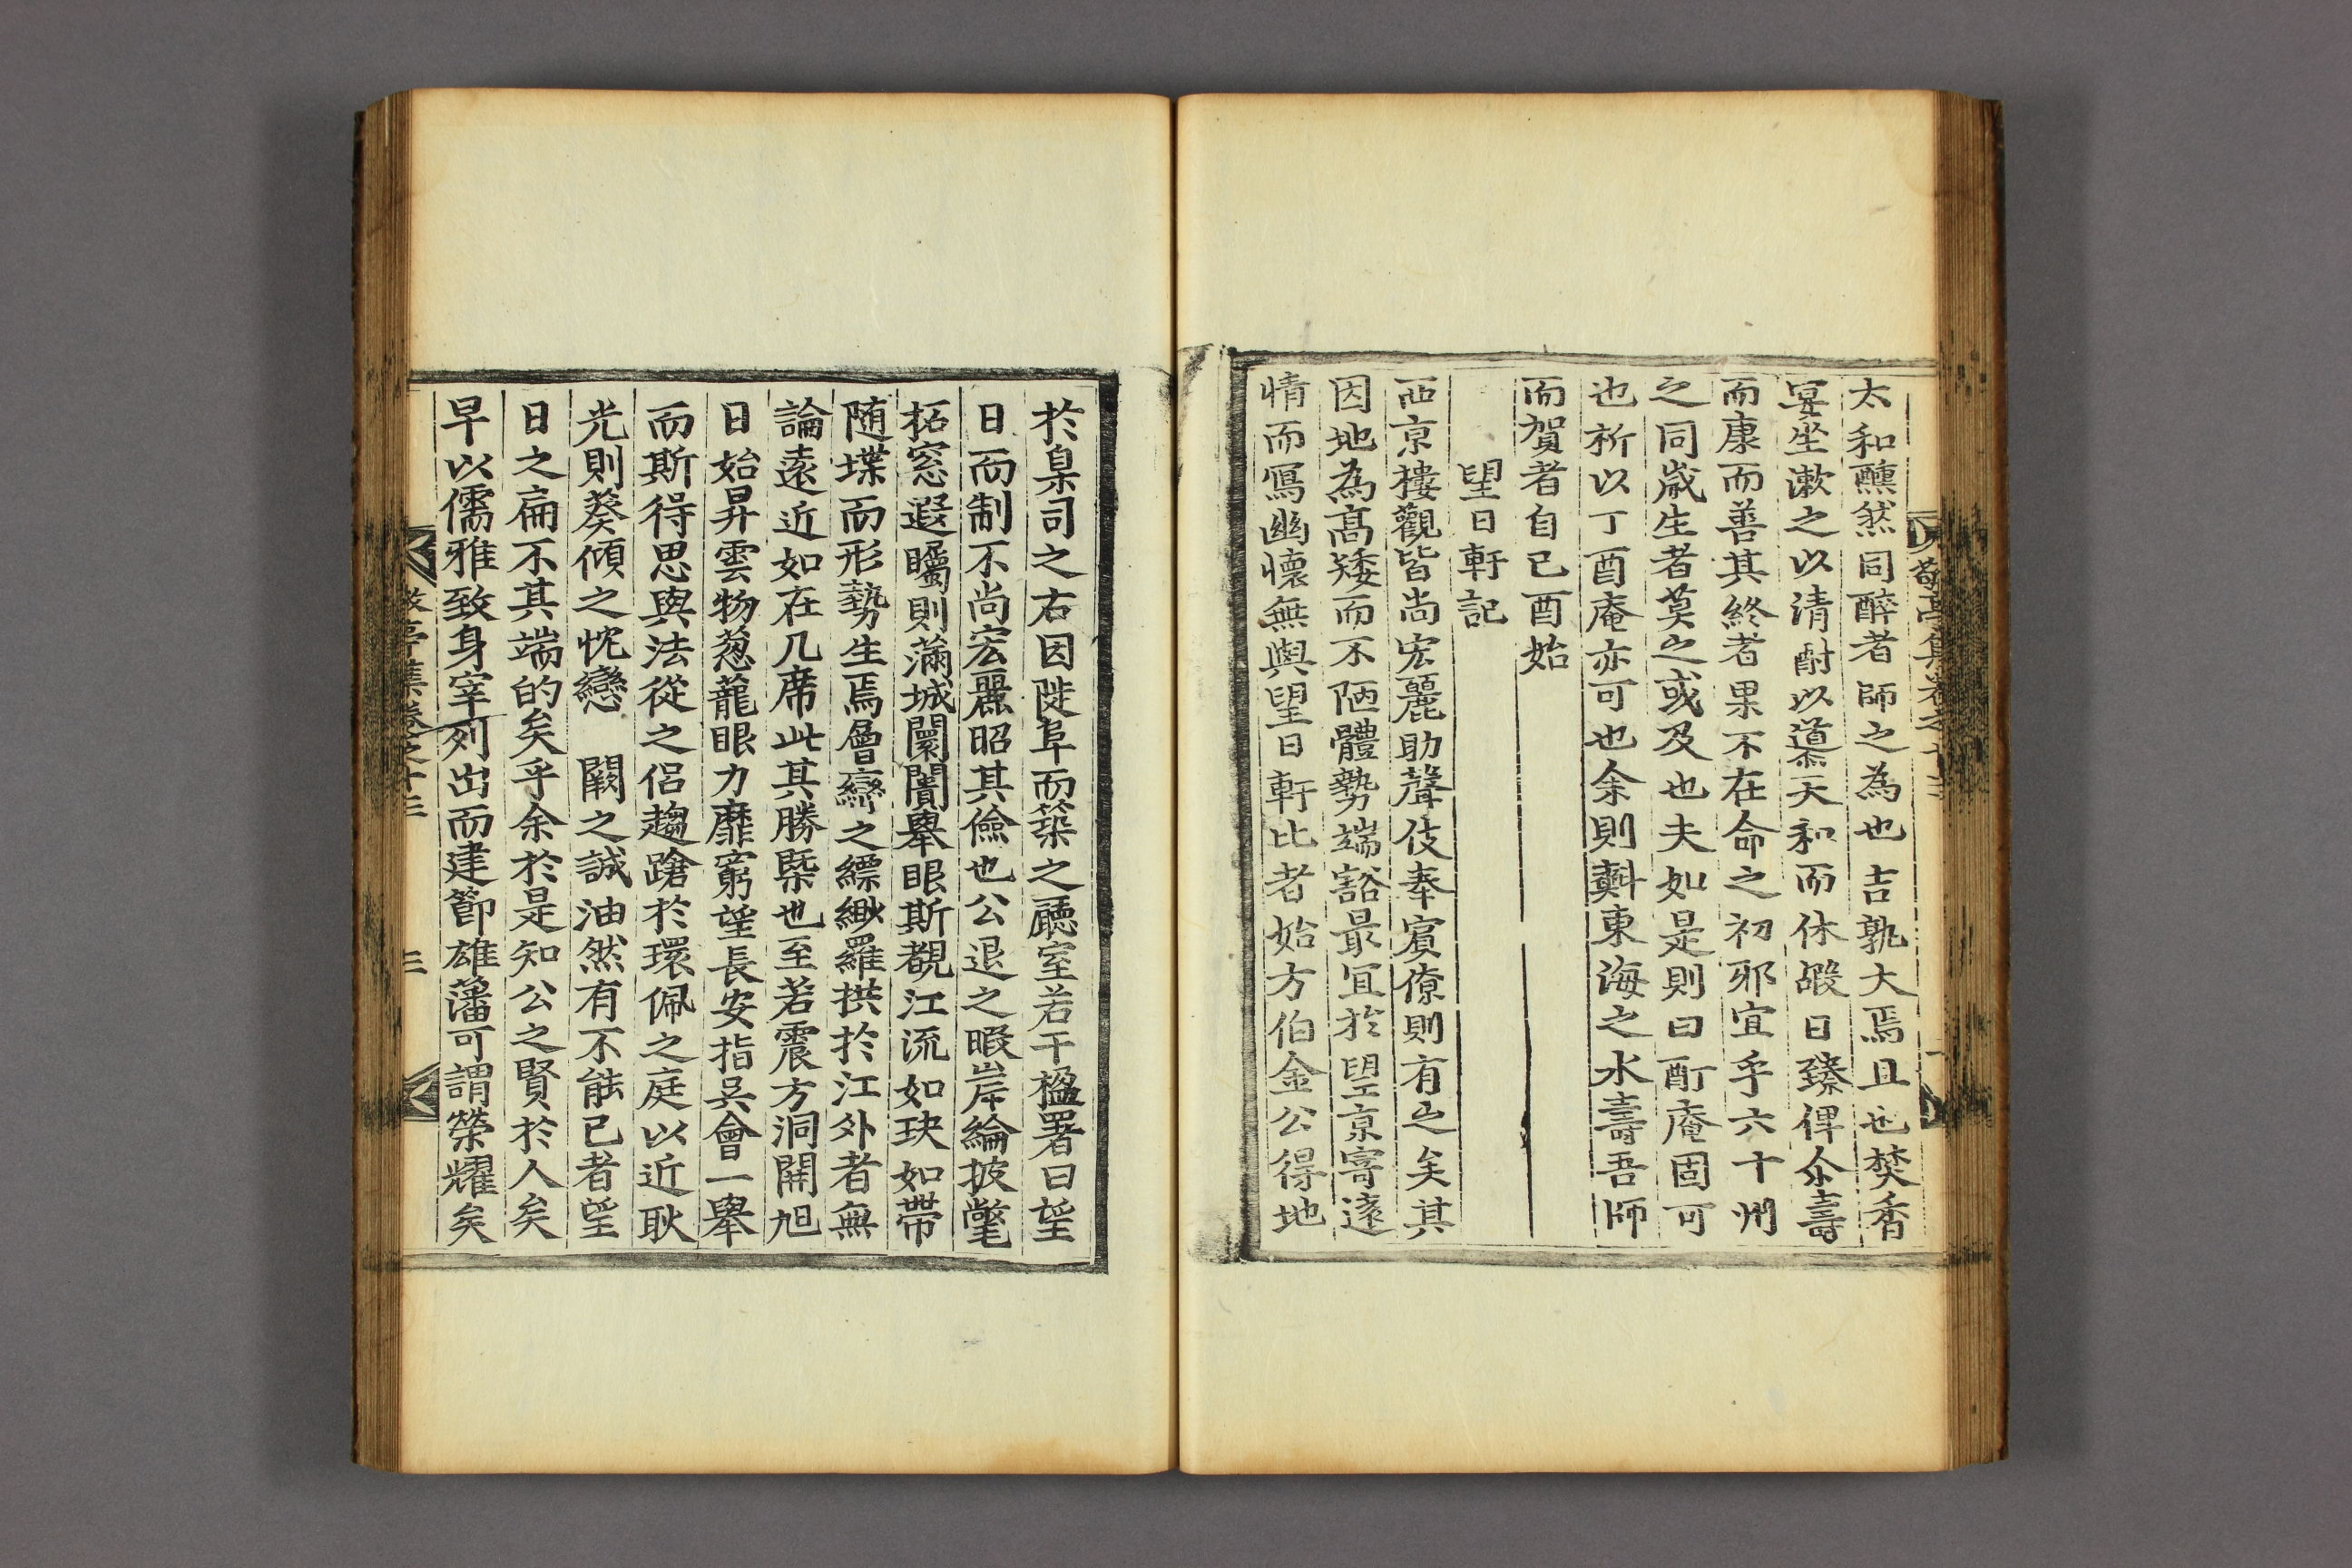 敬亭集卷之十三
太和醺然同醉者師之為也吉孰大焉且也焚香
宴坐漱之以清酎以道天和而休嘏日臻俾介壽
而康而善其終者果不在命之初邪宜乎六十州
之同歲生者莫之或及也夫如是則曰酊庵固可
也祈以丁酉庵亦可也余則㪺東海之水壽吾師
而賀者自己酉始
望日軒記
西京樓觀皆尚宏麗助聲伎奉賓僚則有之矣其
因地為高矮而不陋體勢端豁最宜於望京寄遠
情而寫幽懷無與望日軒比者始方伯金公得地
於臬司之右因陡阜而築之廳室若干楹署曰望
日而制不尚宏麗昭其儉也公退之暇岸綸披氅
拓窓遐矚則滿城闤闠舉眼斯覩江流如玦如帶
隨堞而形勢生焉層巒之縹緲羅拱於江外者無
論遠近如在几席此其勝槩也至若震方洞開旭
日始昇雲物葱蘢眼力靡窮望長安指吳會一舉
而斯得思與法從之侶趨蹌於環佩之庭以近耿
光則葵傾之忱戀 闕之誠油然有不能已者望
日之扁不其端的矣乎余於是知公之賢於人矣
早以儒雅致身宰列出而建節雄藩可謂榮耀矣
敬亭集卷之十三 三